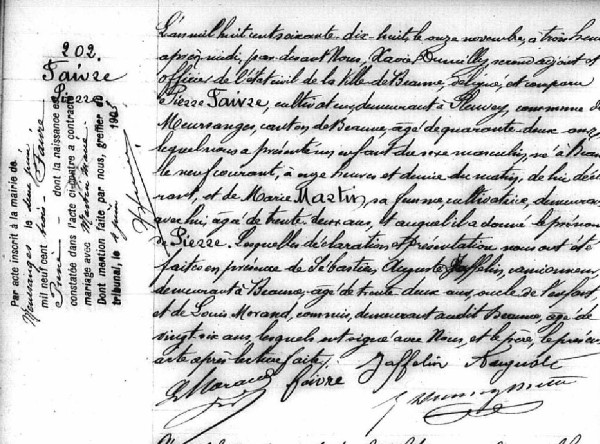 202.
Faivre
Pierre
Par acte inscrit à la mairie de
Meursanges le deux juin
mil neuf cent trois Faivre
Pierre dont la naissance est
constatée dans l'acte ci-contre a contracté
mariage avec Martin Marie
Dont mention faite par nous, greffier du
tribunal, le juin
L'an mil huit cent soixante-dix-huit, le onze novembre, à trois heures
après midi, par devant Nous, Xavier second adjoint et
officier de l'état civil de la Ville de Beaune, délégué, est comparu
Pierre Faivre, cultivateur, demeurant à commune de
Meursanges, canton de Beaune, âgé de quarante-deux ans,
lequel nous a présenté un enfant du sexe masculin, né à Beaune
le neuf courant, à onze heures et demie du matin, de lui décla-
rant, et de Marie Martin, sa femme, cultivatrice, demeurant
avec lui, âgée de trente-deux ans, et auquel il a donné le prénom
de Pierre. Lesquelles déclaration et présentation nous ont été
faites en présence de Sébastien Auguste Jaffelin, camionneur,
demeurant à Beaune, âgé de trente-deux ans, oncle de l'enfant,
et de Louis Morand, commis, demeurant audit Beaune, âgé de
vingt-six ans, lesquels ont signé avec Nous, et le père, le présent
acte après lecture faite.
Jaffelin Auguste
L Morand Faivre